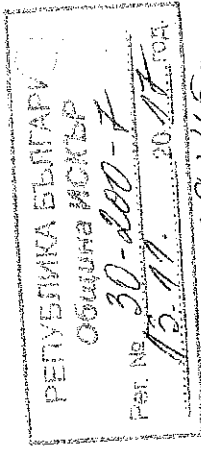 РЕПУБЛИКА БЪЛГАРИ
Община ИСКЪР
Рег. № 30-200-7
13.11. 2017 год.